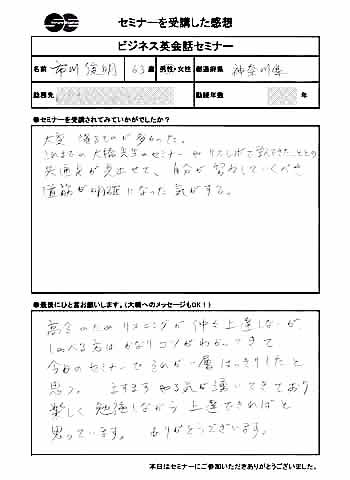 セミナーを受講した感想
ビジネス英会話セミナー
名前 市川俊明 63歳 男性・女性 都道府県 神奈川県
勤務先 勤続年数 年
●セミナーを受講されてみていかがでしたか？
大変 得るものが多かった。
これまでの大橋先生のセミナーや リスレボで学んできたこととの
共通点が見出せて、自分が 学習していくべき
道筋が明確になった気がする。
●最後にひと言お願いします。(大橋へのメッセージもOK！)
高令のため リスニングが 仲々上達しないが、
しゃべる方は かなりコツがわかってきて
今日のセミナーで それが一層はっきりしたと
思う。 ますます やる気が湧いてきており
楽しく 勉強しながら 上達できればと
思っています。 ありがとうございます。
本日はセミナーにご参加いただきありがとうございました。